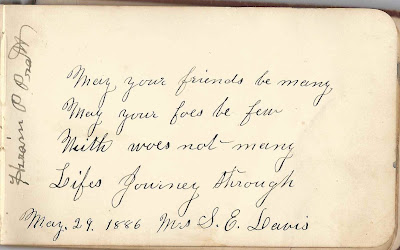 May your friends be many
May your foes be few
With woes not many
Lifes Journey through
May. 29. 1886 Mrs S. E. Davis
Hiram P